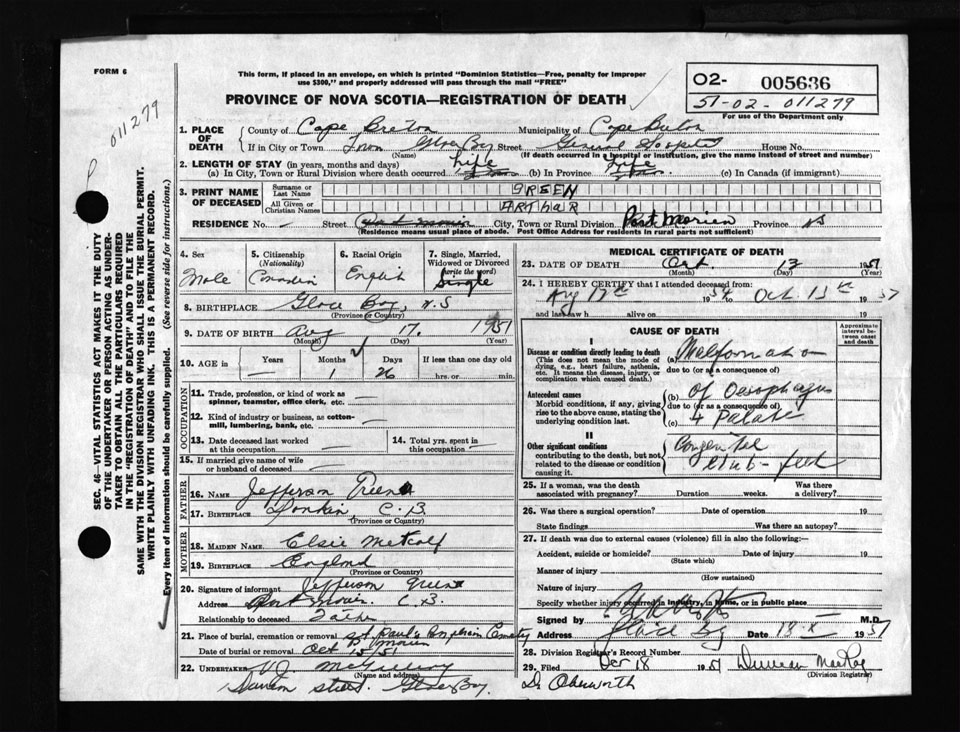 FORM 6
This form, if placed in an envelope, on which is printed "Dominion Statistics—Free, penalty for improper
use $300," and properly addressed will pass through the mail "FREE"
O2- 005636
51-02-011279
For use of the Department only
P 011279
PROVINCE OF NOVA SCOTIA—REGISTRATION OF DEATH
SEC. 46—VITAL STATISTICS ACT MAKES IT THE DUTY
OF THE UNDERTAKER OR PERSON ACTING AS UNDER-
TAKER TO OBTAIN ALL THE PARTICULARS REQUIRED
IN THE "REGISTRATION OF DEATH" AND TO FILE THE
SAME WITH THE DIVISION REGISTRAR WHO SHALL ISSUE THE BURIAL PERMIT.
WRITE PLAINLY WITH UNFADING INK. THIS IS A PERMANENT RECORD.
Every item of information should be carefully supplied. (See reverse side for instructions.)
1. PLACE OF DEATH County of Cape Breton Municipality of Cape Breton
If in City or Town Town Glace Bay Street General Hospital House No.
(Name) (If death occurred in a hospital or institution, give the name instead of street and number)
2. LENGTH OF STAY (in years, months and days)
(a) In City, Town or Rural Division where death occurred Life (b) In Province Life (c) In Canada (if immigrant)
3. PRINT NAME OF DECEASED Surname or Last Name GREEN
All Given or Christian Names ARTHUR
RESIDENCE No. — Street City, Town or Rural Division Port Morien Province NS
(Residence means usual place of abode. Post Office Address for residents in rural parts not sufficient)
4. Sex Male
5. Citizenship (Nationality) Canadian
6. Racial Origin English
7. Single, Married, Widowed or Divorced (write the word) Single
8. BIRTHPLACE Glace Bay, N.S
(Province or Country)
9. DATE OF BIRTH Aug 17. 1951
(Month) (Day) (Year)
10. AGE in — Years 1 Months 26 Days If less than one day old
hrs. or min.
OCCUPATION
11. Trade, profession, or kind of work as
spinner, teamster, office clerk, etc. —
12. Kind of industry or business, as cotton-
mill, lumbering, bank, etc. —
13. Date deceased last worked
at this occupation —
14. Total yrs. spent in
this occupation —
15. If married give name of wife
or husband of deceased —
FATHER
16. NAME Jefferson Green
17. BIRTHPLACE C.B
(Province or Country)
MOTHER
18. MAIDEN NAME Elsie Metcalf
19. BIRTHPLACE England
(Province or Country)
20. Signature of informant Jefferson Green
Address Port Morien C.B.
Relationship to deceased Father
21. Place of burial, cremation or removal St Paul's Anglican Cemetery
Morien
Date of burial or removal Oct 15/51
22. UNDERTAKER VJ McGillivray
(Name and address)
street. Glace Bay.
MEDICAL CERTIFICATE OF DEATH
23. DATE OF DEATH Oct 13 1951
(Month) (Day)
24. I HEREBY CERTIFY that I attended deceased from:
Aug 17th 1951 to Oct. 13th 1951
and last saw h alive on 19
CAUSE OF DEATH
Approximate
interval be-
tween onset
and death
I
Disease or condition directly leading to death
(This does not mean the mode of
dying, e.g., heart failure, asthenia,
etc. It means the disease, injury, or
complication which caused death.)
(a) Malformation
due to (or as a consequence of)
Antecedent causes
Morbid conditions, if any, giving
rise to the above cause, stating the
underlying condition last.
(b) of Oesophagus
due to (or as a consequence of)
(c) + Palate
II
Other significant conditions
contributing to the death, but not
related to the disease or condition
causing it.
Congenital
club-feet
25. If a woman, was the death
associated with pregnancy? Duration weeks. Was there
a delivery?
26. Was there a surgical operation? Date of operation 19
State findings Was there an autopsy?
27. If death was due to external causes (violence) fill in also the following:—
Accident, suicide or homicide? Date of injury 19
(State which)
Manner of injury
(How sustained)
Nature of injury
Specify whether injury occurred in industry, in home, or in public place
Signed by M.D.
Address Glace Bay Date 18-X 1951
28. Division Registrar's Record Number
29. Filed Oct 18 1951 Duncan MacRae
(Division Registrar)